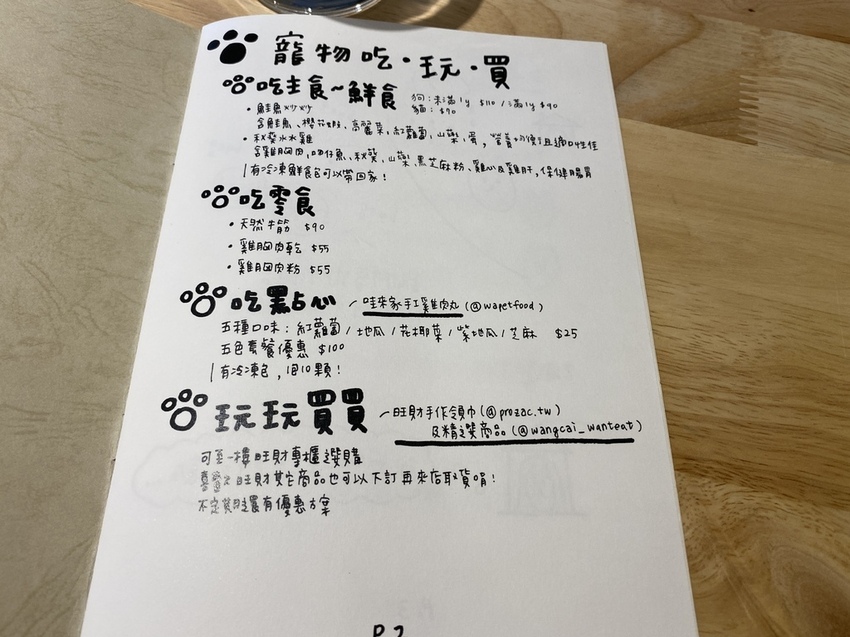 寵物吃·玩·買
吃主食~鮮食
狗:未滿1y $110/滿1y $90
貓:$90
• 鮭魚炒炒
含鮭魚、櫻花蝦、高麗菜、紅蘿蔔、山藥、蛋,營養均衡且適口性佳
• 秋葵水水雞
含雞胸肉,吻仔魚、秋葵、山藥、黑芝麻粉、雞心及雞肝,保健腸胃
有冷凍鮮食包可以帶回家!
吃零食
• 天然牛筋 $90
• 雞胸肉乾 $55
• 雞胸肉粉 $55
吃點心
哇來家手工雞肉丸(@wapetfood)
五種口味:紅蘿蔔/地瓜/花椰菜/紫地瓜/芝麻 $25
五色套餐優惠 $100
有冷凍包,1包10顆!
玩玩買買
旺財手作領巾(@prozac.tw)
及精選商品(@wangcai_wanteat)
可至一樓旺財專櫃選購
喜歡旺財其它商品也可以下訂再來店取貨唷!
不定期還有優惠方案
P.2